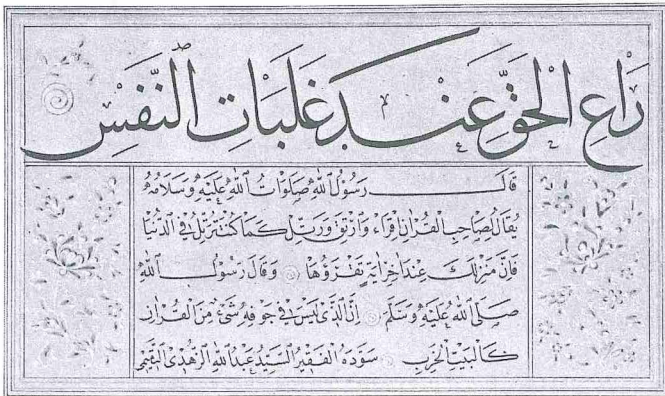 رَاعِ الْحَقَّ عِنْدَ غَلَبَاتِ النَّفْسِ
قَالَ رَسُولُ اللّٰهِ صَلَوَاتُ اللّٰهِ عَلَيْهِ وَسَلَامُهُ
يُقَالُ لِصَاحِبِ الْقُرْاٰنِ اقْرَاءْ وَارْتَقِ وَرَتِّلْ كَمَا كُنْتَ تُرَتِّلُ فِي الدُّنْيَا
فَاِنَّ مَنْزِلَكَ عِنْدَ اٰخِرِ اٰيَةٍ تَقْرَؤُهَا وَقَالَ رَسُولُ اللّٰهِ
صَلَّى اللّٰهُ عَلَيْهِ وَسَلَّمَ اِنَّ الَّذِي لَيْسَ فِي جَوْفِهِ شَيْءٌ مِنَ الْقُرْاٰنِ
كَالْبَيْتِ الْخَرِبِ سَوَّدَهُ الْفَقِيرُ السَّيِّدُ عَبْدُ اللّٰهِ الزُّهْدِيُّ التَّمِيمِي